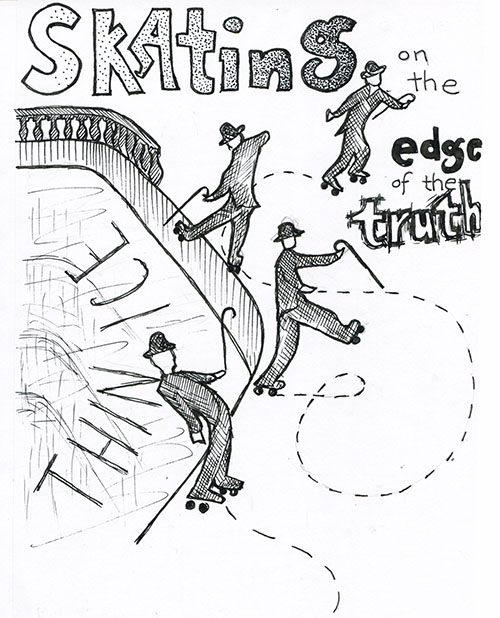 SKAting
on
the
edge
of the
truth
THIN ICE